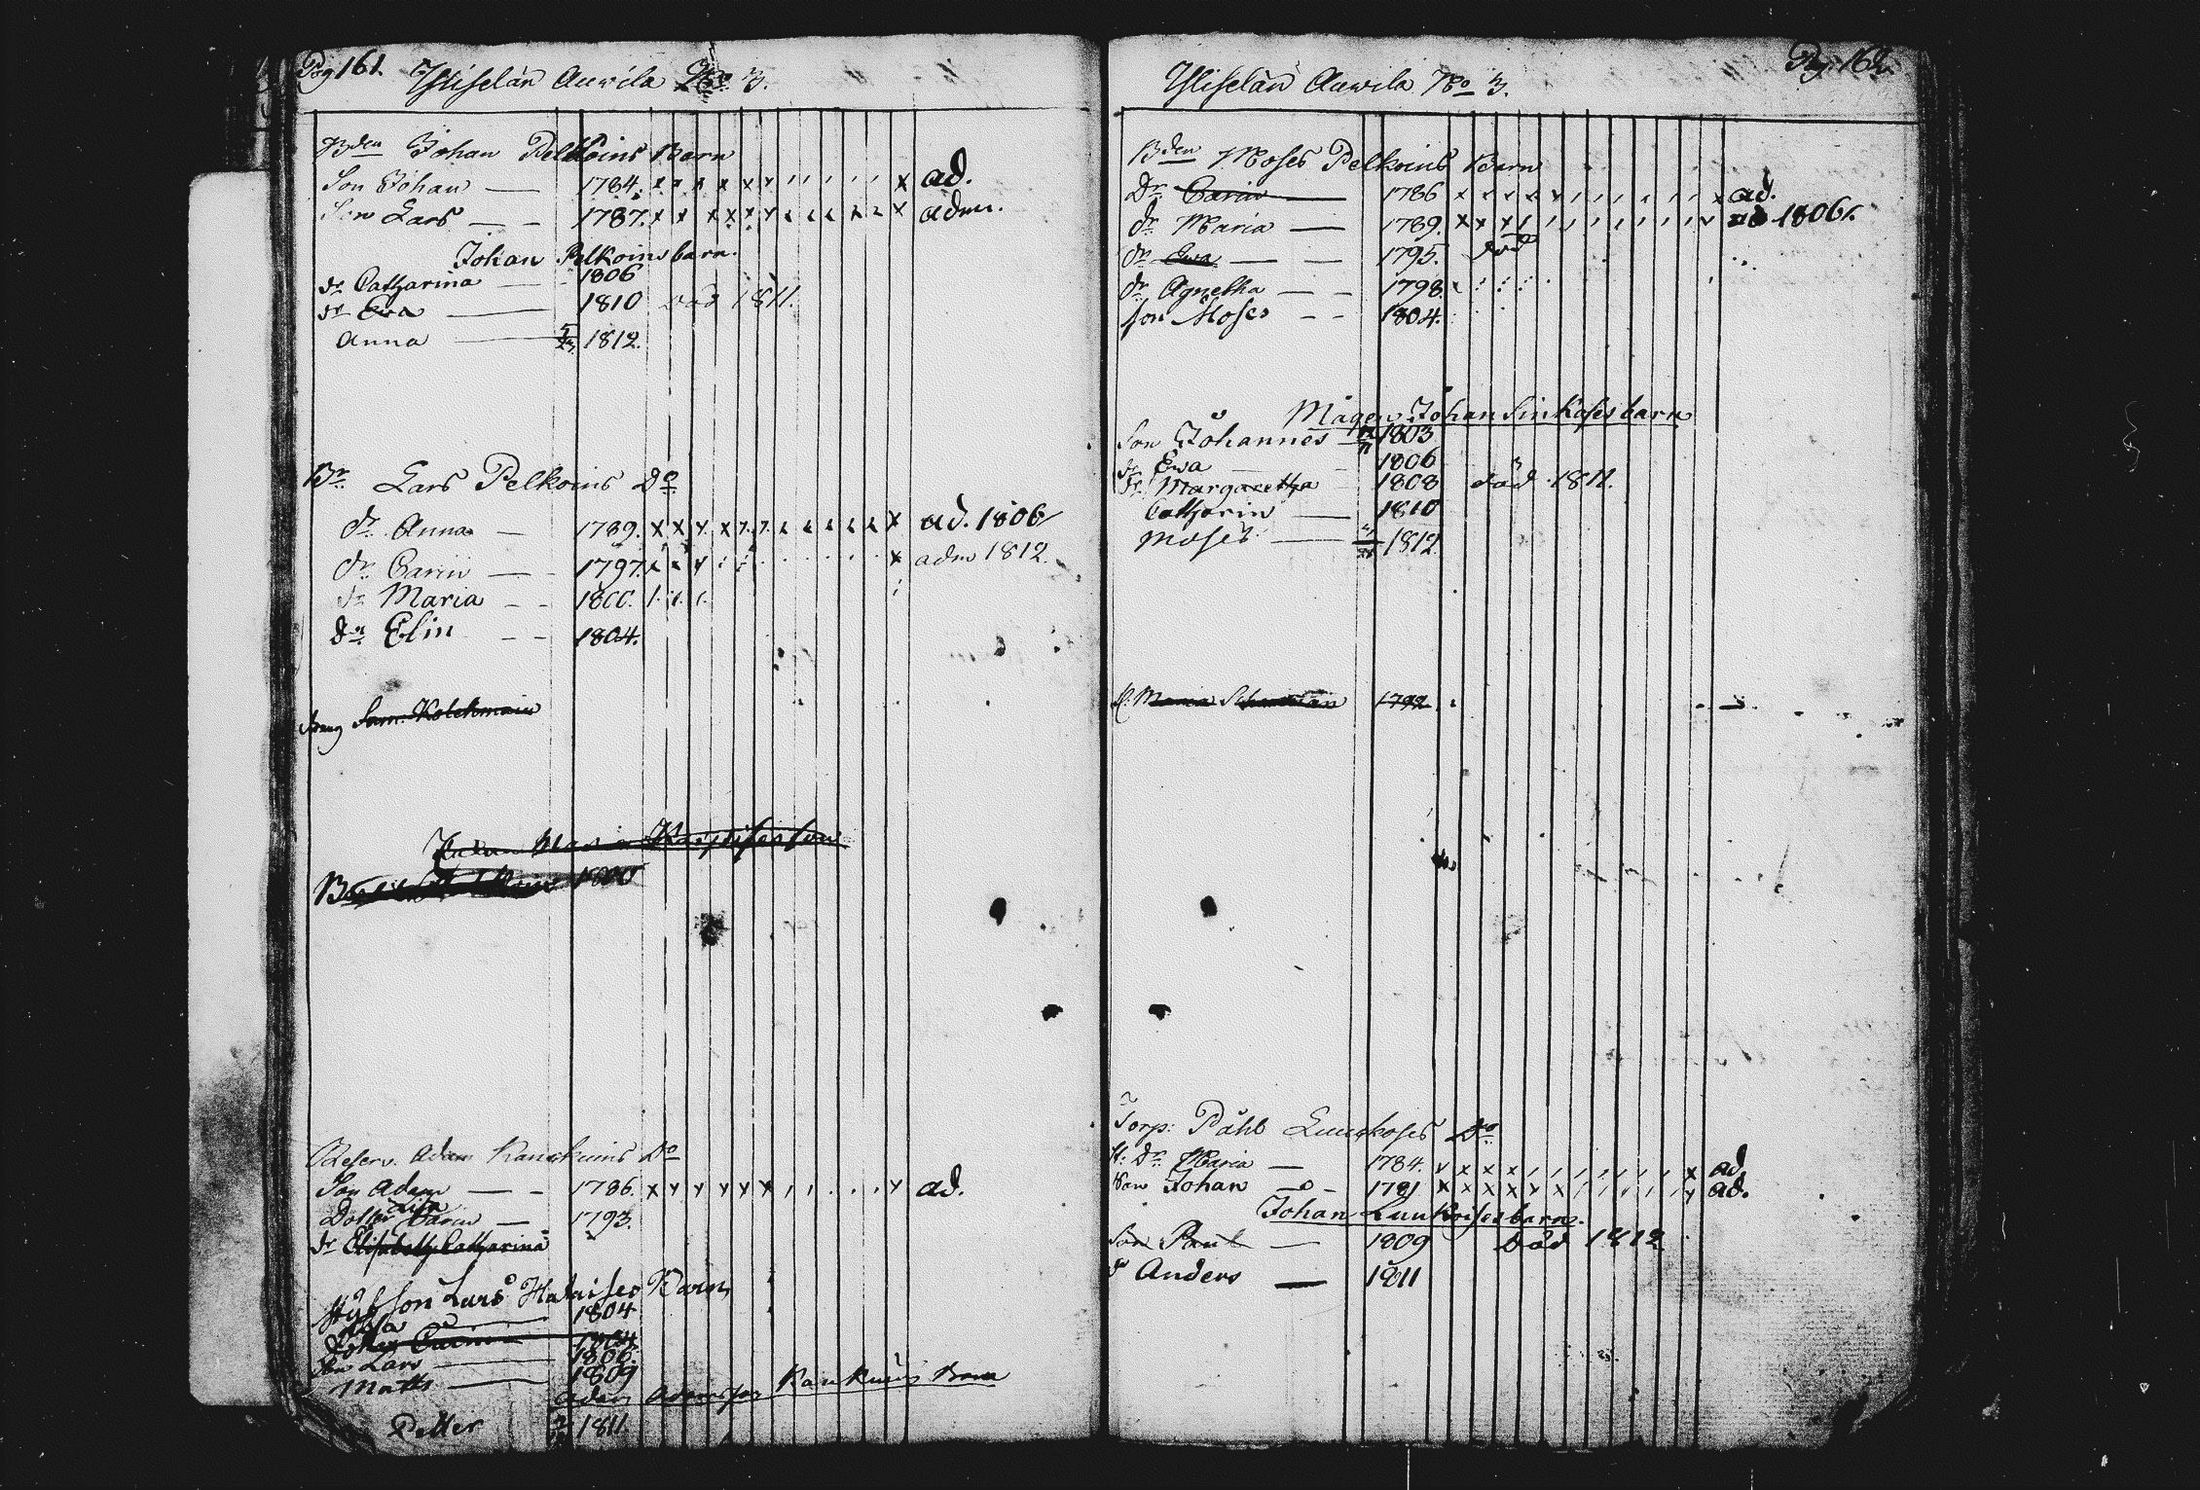 Pag 161. Yliselän Auwila No 3.
Bden Johan Pelkoins Barn
Son Johan — 1784. x x x x x x x ad.
Son Lars — — 1787. x x x x x x x adm.
Johan Pelkoins barn.
dr Catharina — 1806
dr Ewa — 1810 död 1811.
Anna — 1812.
Br Lars Pelkoins Do
dr Anna — 1789. x x x x x ad. 1806
dr Carin — 1797. x x x x adm 1812.
dr Maria — — 1800.
dr Elin — — 1804.
Sam. Kolehmain
1800
Reserv. Adam Kanckuins Do
Son Adam — — 1786. x x x x x x x ad.
Dotter Carin — 1793.
dr Elisabeth Catharina
Lars Barn
1804
1804
Son Lars — 1806.
Matts — 1809
Adam Adamsson Kankuins Barn
Petter 1811
Pag 162.
Yliselän Auwila No 3.
Bden Moses Pelkoins Barn
Dr Carin — 1786 x x x x x x ad.
dr Maria — 1789. x x x ad 1806.
dr Ewa — — 1795. död
dr Agnetha — — 1798.
son Moses — — 1804.
Mågen Johan Sinkoses barn
Son Johannes 1803
dr Ewa 1806
dr Margaretha — 1808 död 1811.
Catharin — 1810
Moses — 1812.
Maria 1792
Torp: Påhl Luukoses Do
dr Maria — 1784. x x x x x ad
Son Johan — 1781 x x x x x x ad.
Johan Luukoises barn.
Son Paul — 1809 Död 1812
Anders — 1811